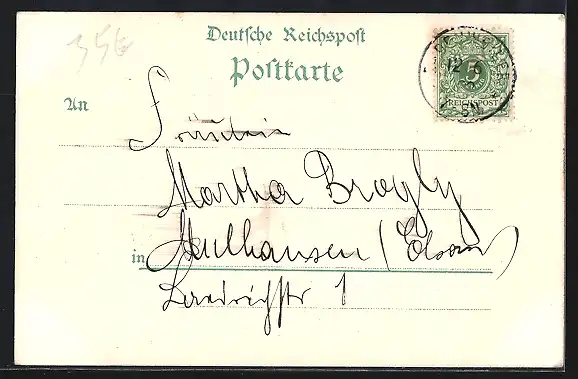 356
Deutsche Reichspost
Postkarte
5
REICHSPOST
12
5N
An
Fräulein
Martha Brogly
in Mulhausen (Elsass)
1